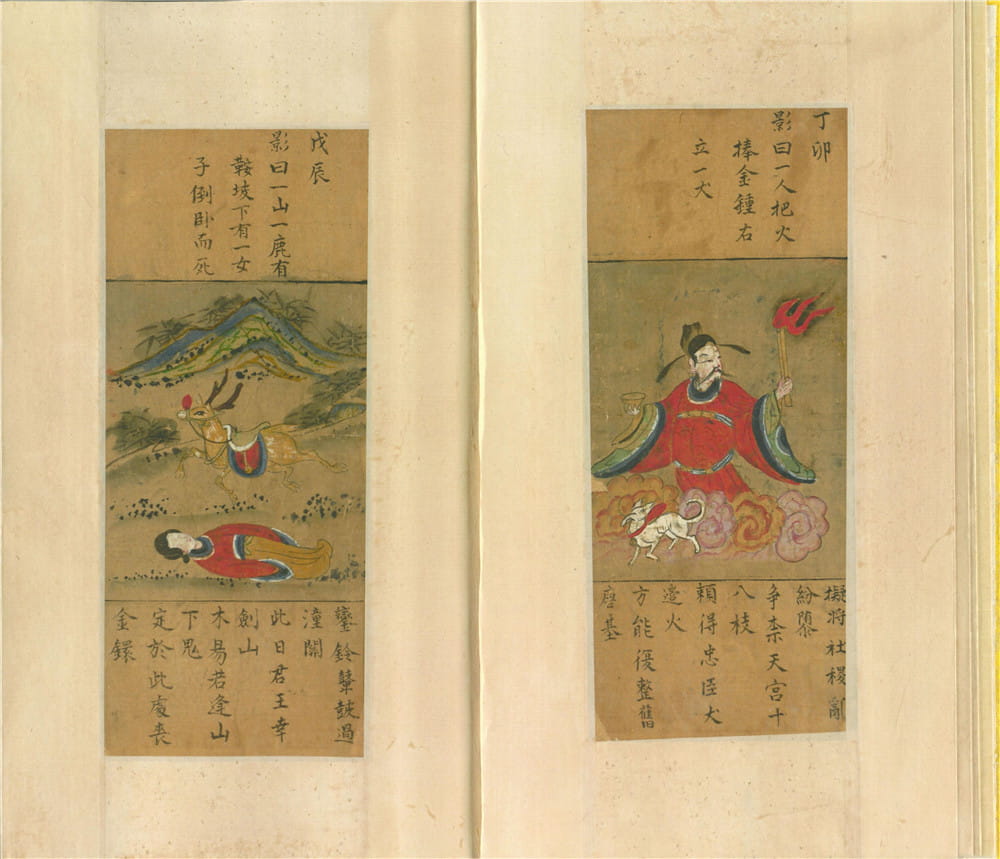 丁卯
影曰一人把火
捧金鍾右
立一犬
擬將社稷亂
紛隳
争柰天宫十
八枝
頼得忠臣犬
邉火
方能復整舊
唐基
戊辰
影曰一山一鹿有
鞍坡下有一女
子倒卧而死
鑾鈴鼙鼓過
潼關
此日君王幸
劍山
木易若逢山
下鬼
定於此處喪
金鐶